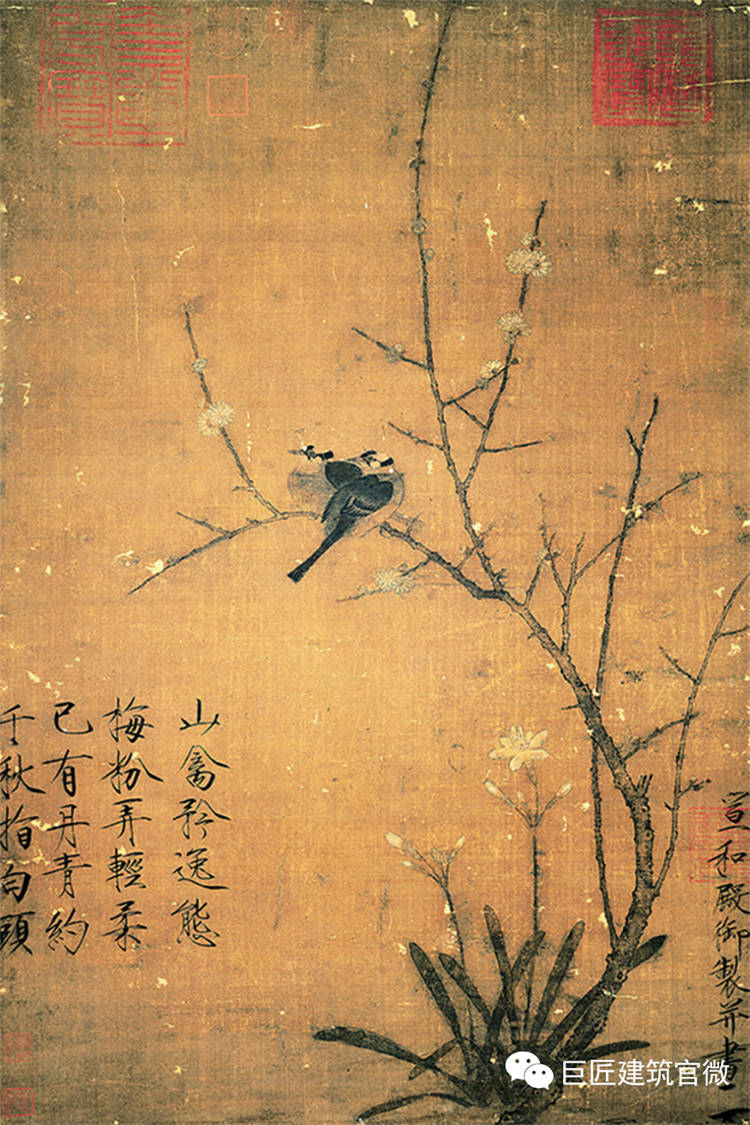 宣和殿御製并書
山禽矜逸態
梅粉弄輕柔
已有丹青約
千秋指白頭
巨匠建筑官微